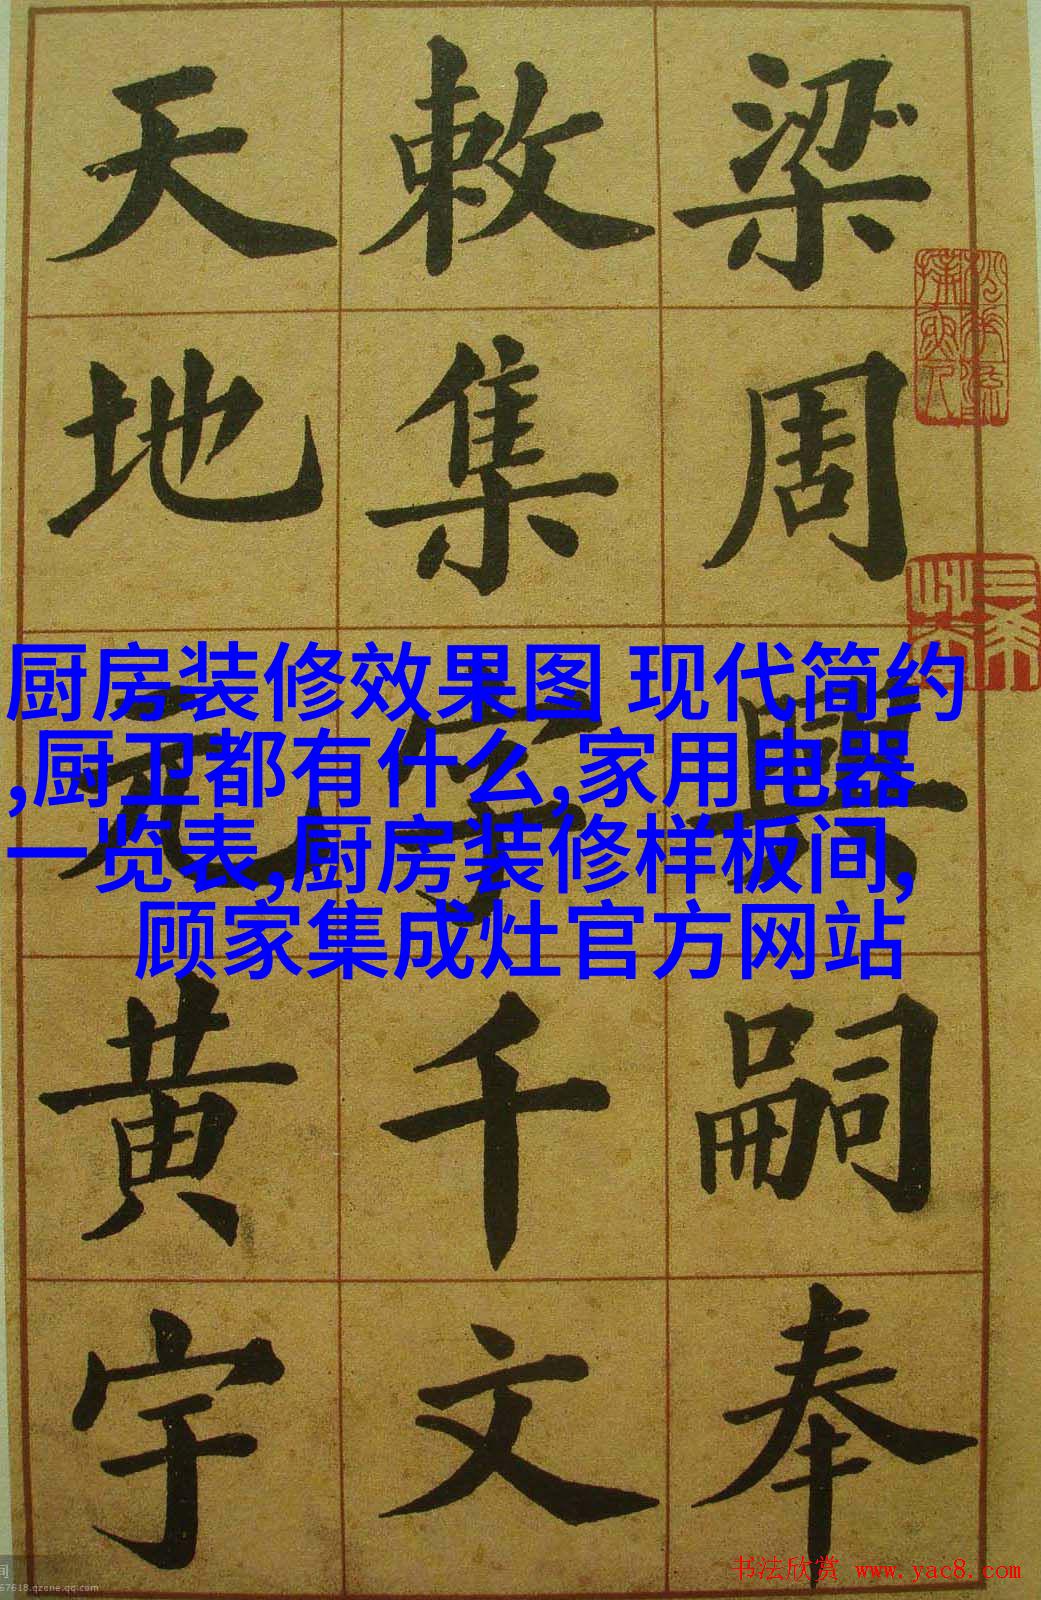 梁周興嗣奉
敕集字千文
天地元黄宇
厨房装修效果图 现代简约
,厨卫都有什么,家用电器
一览表,厨房装修样板间,
顾家集成灶官方网站
书法欣赏 www.yac8.com
67618.qzone.qq.com